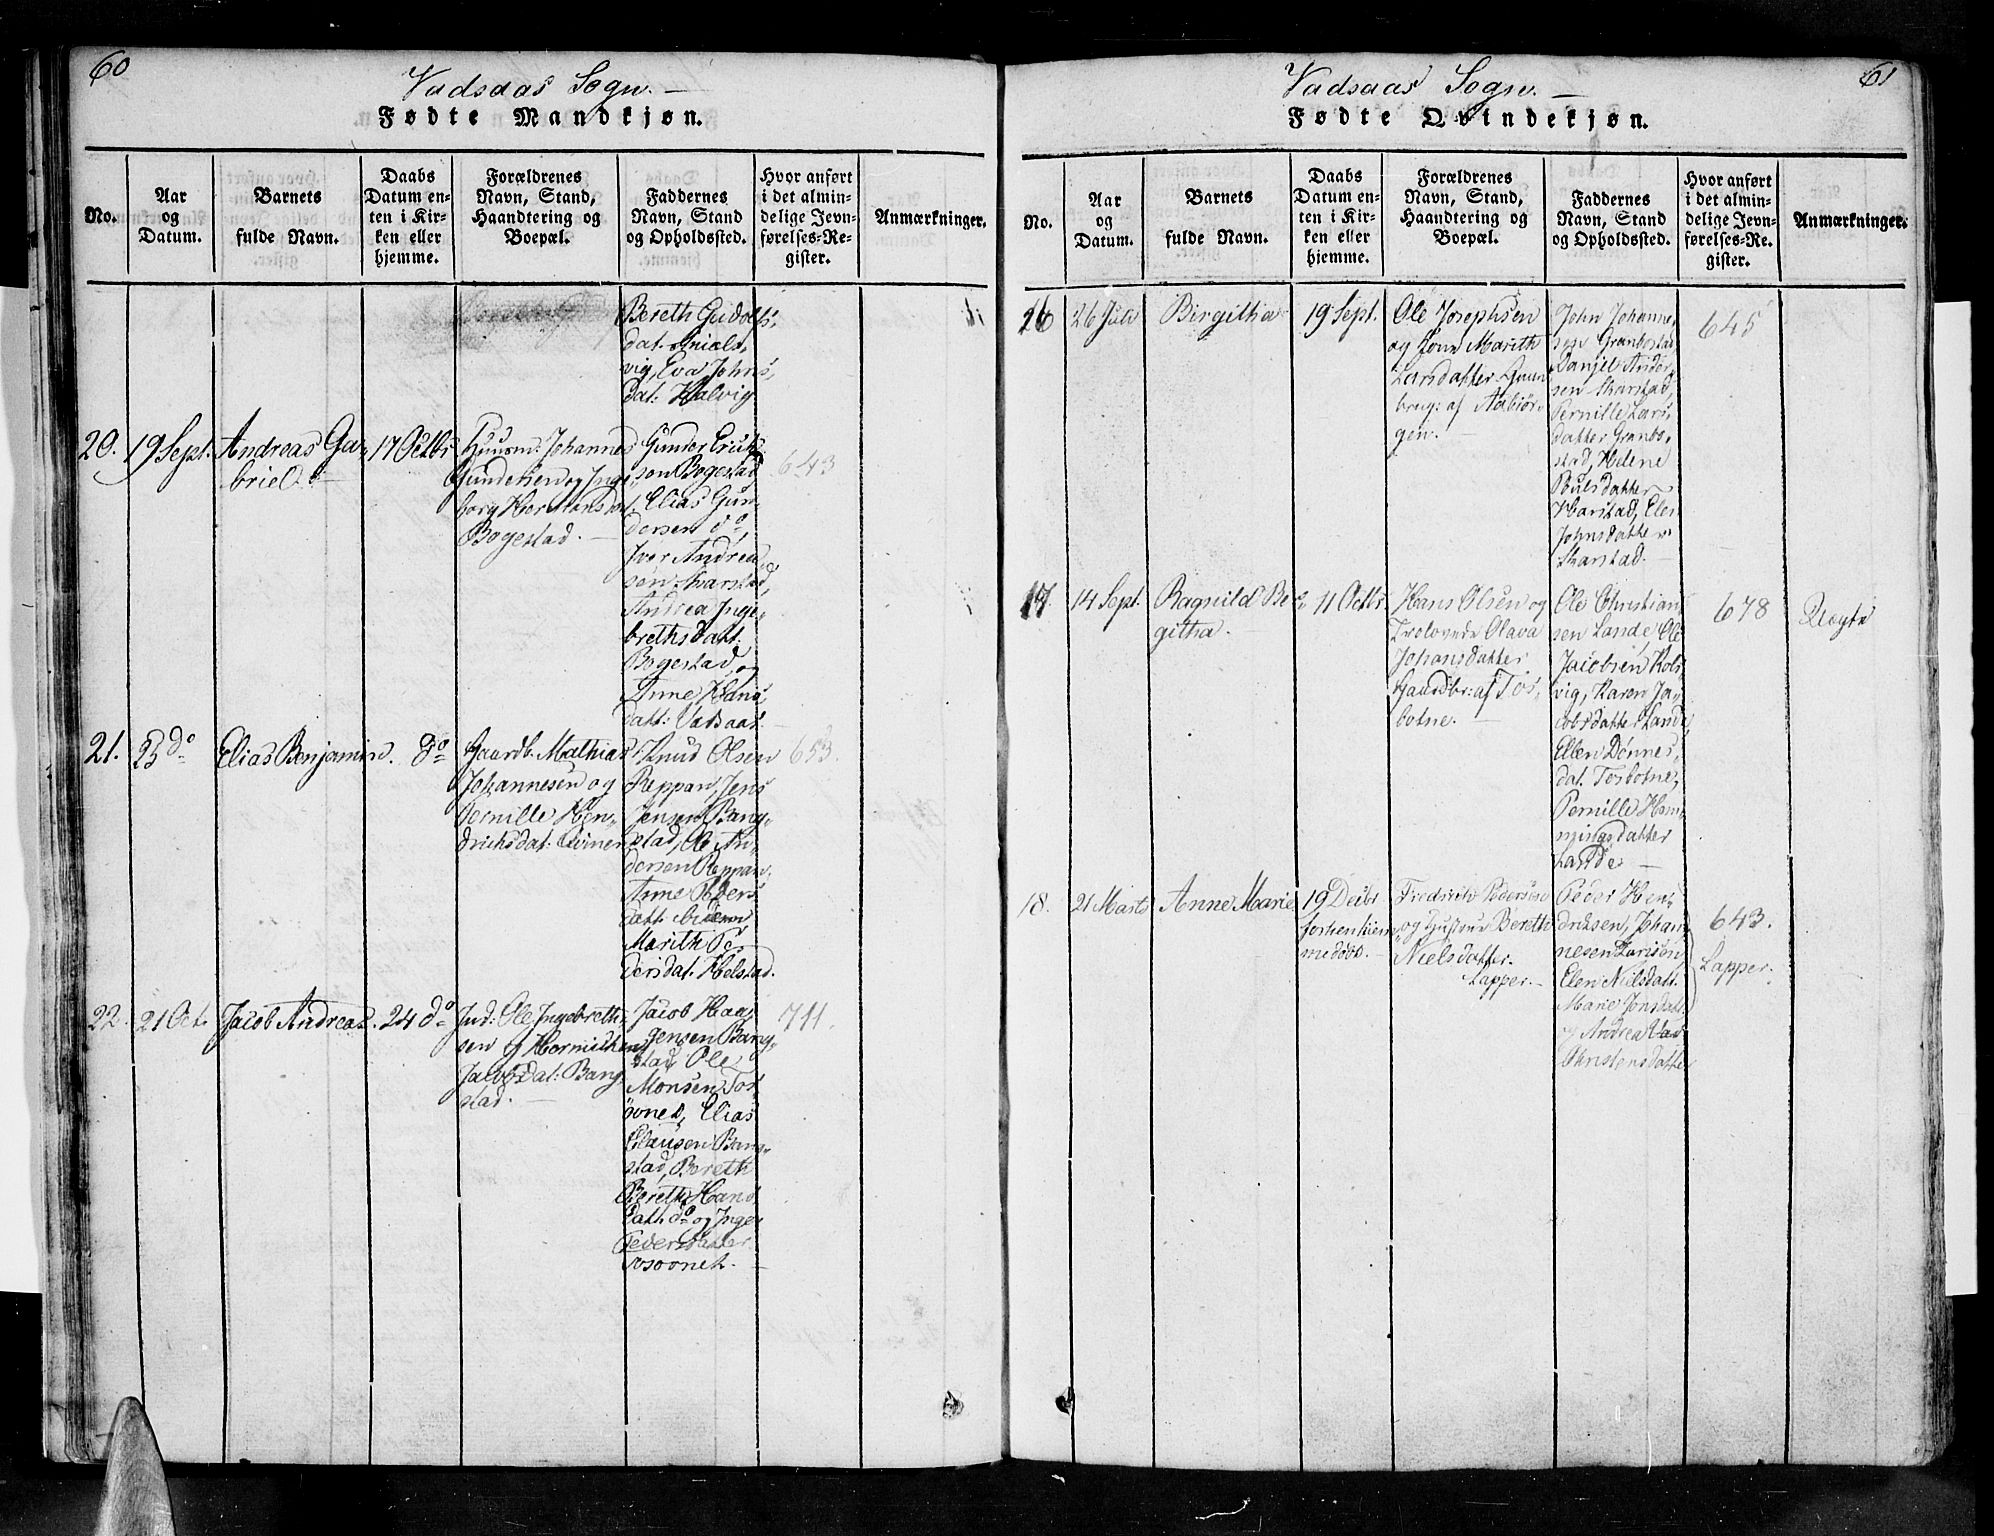 60
Vadsaas Sogn.
Fødte Mandkjøn.
No.
Aar
og
Datum.
Barnets
fulde Navn.
Daabs
Datum en-
ten i Kir-
ken eller
hjemme.
Forældrenes
Navn, Stand,
Haandtering og
Boepæl.
Faddernes
Navn, Stand
og Opholdssted.
Hvor anført
i det almin-
delige Jevn-
førelses-Re-
gister.
Anmærkninger.
Bereth Gudolfs-
dat.
vig, Eva Johns-
dat: Halvig
20.
19 Sept.
Andreas Ga-
briel
17 Octbr
Huusm: Johannes
Gundersen og Inge-
borg Hermansdat.
Bogestad.
Gunder Erich-
sen Bogestad
Elias Gun-
dersen do,
Iver Andrea-
sen Skarstad,
Andrea Inge-
brethsdatt.
Bogestad, og
Anne Hans-
datt: Vadsaas
643
21.
23 do
Elias Benjamin.
do
Gaardb. Mathias
Johannesen og
Pernille Hen-
drichsdat:
Knud Olsen
Reppan, Jens
Jensen Bang-
stad, Ole An-
dersen Reppan,
Anne Peders
datt.
Marith Pe-
dersdat. Helstad.
653.
22.
21 Oct.
Jacob Andreas.
24 do
Ind: Ole Ingebreth-
sen og
Jacobsdat: Bang-
stad.
Jacob Haa-
gensen Bang-
stad, Ole
Monsen
Elias
Clausen Bang-
stad, Bereth
Bereth Hans
datt. do og Inge
Pedersdatter
711.
61
Vadsaas Sogn.
Fødte Qvindekjøn.
No.
Aar
og
Datum.
Barnets
fulde Navn.
Daabs
Datum en-
ten i Kir-
ken eller
hjemme.
Forældrenes
Navn, Stand,
Haandtering og
Boepæl.
Faddernes
Navn, Stand
og Opholdssted.
Hvor anført
i det almin-
delige Jevn-
førelses-Re.
gister.
Anmærkninger.
16
26 Juli
Birgitha
19 Sept.
Ole Josephsen
og Marith
Larsdatter
brug: af Aabiør-
gen.
John Johanne-
sen Granbostad
Danjel Ander-
sen Skarstad,
Pernille Lars-
datter Granbo-
stad, Helene
Poulsdatter
Harstad, Elen
Johnsdatter
Skarstad.
645
17.
14 Sept.
Ragnild Ber-
githa.
11 Octbr.
Hans Olsen og
Trolovede Olava
Johansdatter
Gaardbr: af Tos-
botne.
Ole Christian-
sen Lande, Ole
Jacobsen Kols-
vig, Karen Ja-
cobsdatter Lande,
Ellen Dønnes-
dat. Tosbotne,
Pernille Hem-
mingsdatter
Lande
678
Uægte
18.
21 Marts
Anne Marie
19 Decbr
forhen hiem-
medøbt.
Fredrich Pedersen
og Hustrue Bereth
Nielsdatter.
Lapper.
Peder Hen-
driksen, Johan-
nesen Larisen
Elen Nielsdatt.
Marie Jonsdatt.
og Andrea
Christensdatter
643.
Lapper.